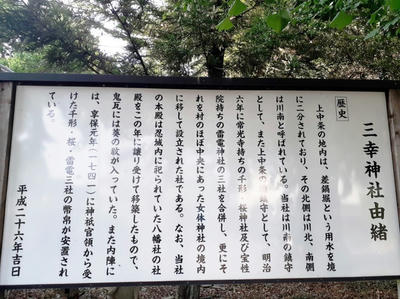 三幸神社由緒
歴史
上中条の地内は、差鍋堀という用水を境
に二分されており、その北側は川北、南側
は川南と呼ばれている。当社は川南の鎮守
として、また上中条の鎮守として、明治
六年に常光寺持ちの千形・桜神社及び宝性
院持ちの雷電神社の三社を合併し、更にそ
れを村のほぼ中央にあった女体神社の境内
に移して設立された社である。なお、当社
の本殿は忍城内に祀られていた八幡社の社
殿をこの年に譲り受けて移築したもので、
鬼瓦には葵の紋が入っていた。また内陣に
は、享保元年（一七四一）に神祇官領から受
けた千形・桜・雷電三社の幣帛が安置され
ている。
平成二十六年吉日